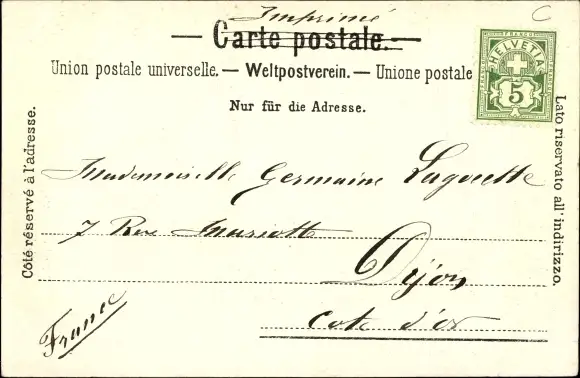 Imprimé
C
— Carte postale. —
Union postale universelle. — Weltpostverein. — Unione postale
Nur für die Adresse.
FRANCO
HELVETIA
5
Côté réservé à l'adresse.
Lato riservato all'indirizzo.
Mademoiselle Germaine Lagorette
7 Rue Mariotte
Dijon
Cote d'or
France